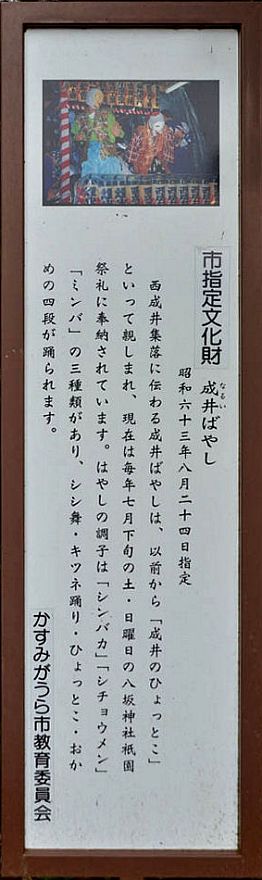 市指定文化財 成井ばやし
なるい
昭和六十三年八月二十四日指定
西成井集落に伝わる成井ばやしは、以前から「成井のひょっとこ」
といって親しまれ、現在は毎年七月下旬の土・日曜日の八坂神社祇園
祭礼に奉納されています。はやしの調子は「シンバカ」「シチョウメン」
「ミンバ」の三種類があり、シシ舞・キツネ踊り・ひょっとこ・おか
めの四段が踊られます。
かすみがうら市教育委員会